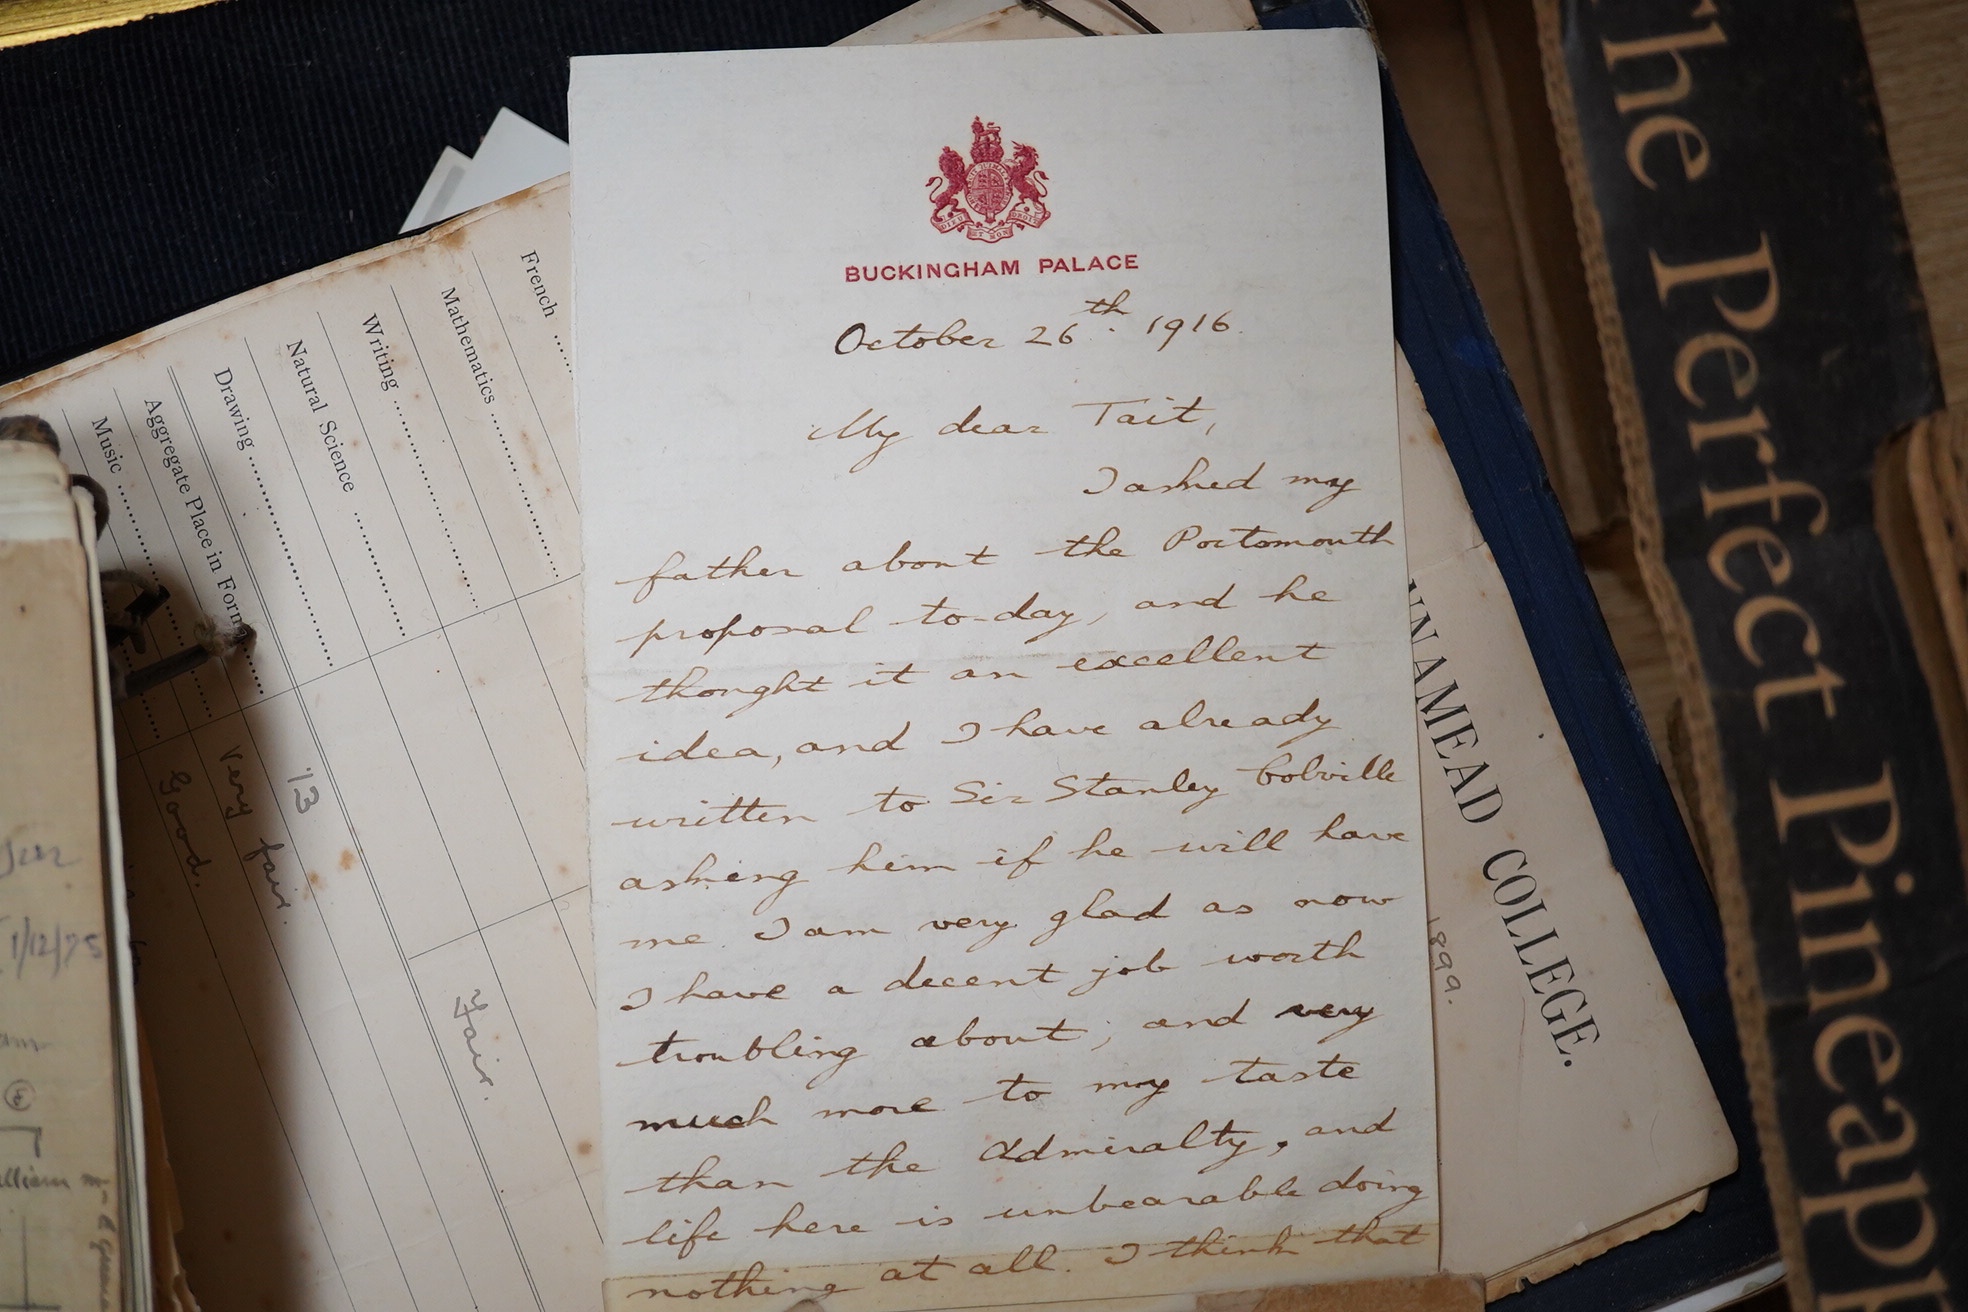 BUCKINGHAM PALACE
October 26th. 1916.
My dear Tait,
I asked my
father about the Portsmouth
proposal to-day, and he
thought it an excellent
idea, and I have already
written to Sir Stanley Colville
asking him if he will have
me. I am very glad as now
I have a decent job worth
troubling about; and very
much more to my taste
than the Admiralty, and
life here is unbearable doing
nothing at all. I think that
French
Mathematics
Writing
Natural Science
Drawing
Aggregate Place in Form
Music
13
Very fair.
Good.
Fair.
NNAMEAD COLLEGE.
1899.
The Perfect Pineapp
1/12/75